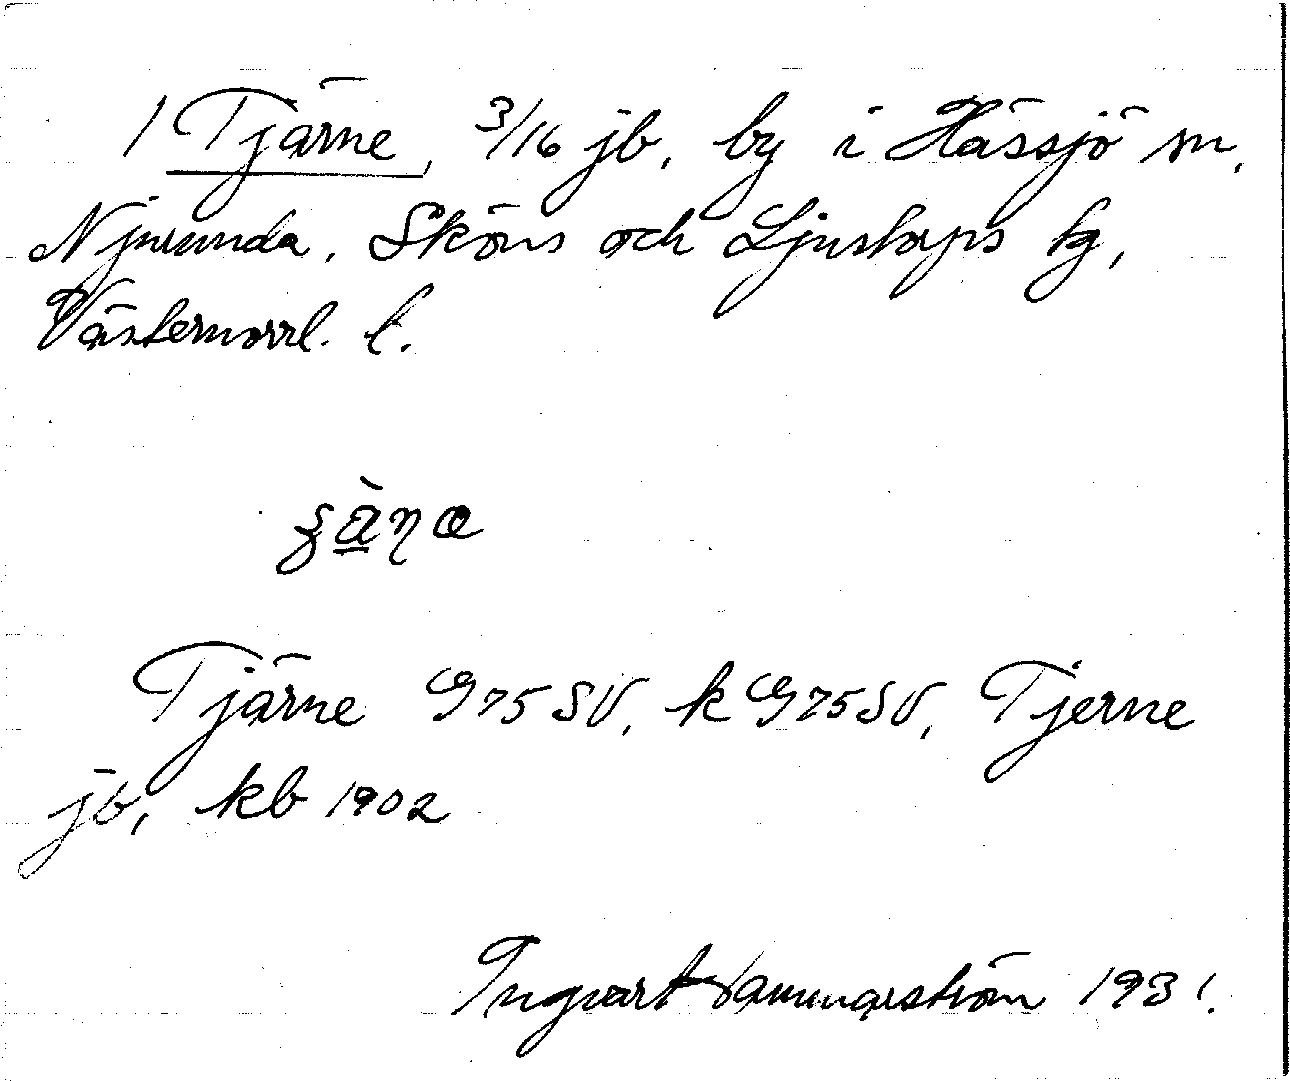 1 Tjärne, 3/16 jb, by i Hässjö sn,
Njurunda, Sköns och Ljustorps tg,
Västernorrl. l.
Tjärne G75SV, k G75SV, Tjerne
jb, kb 1902
Ingvart Hammarström 1931.